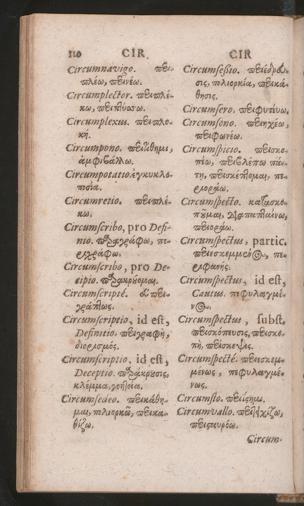 110 CIR
Circumnavigo. περι-
πλέω, περινέω.
Circumplector. περιπλέ-
κω, περιπτύσσω.
Circumplexus. περιπλο-
κή.
Circumpono. περιτίθημι,
ἀμφιβάλλω.
Circumpotatio ἐγκυκλο-
ποσία.
Circumretio. περιπλέ-
κω.
Circumscribo, pro Defi-
nio. παραγράφω, πε-
ριγράφω.
Circumscribo, pro De-
cipio.
Circumscriptè.
Circumscriptio, id est,
Definitio. περιγραφὴ,
διορισμός.
Circumscriptio, id est,
Deceptio. παράκρυσις,
κλέμμα, γοητεία.
Circumsedeo. περικάθη-
μαι, πολιορκῶ, περικα-
θίζω.
CIR
Circumsessio. περιέδρευ-
σις, πολιορκία, περικά-
θησις.
Circumsero. περιφυτεύω,
Circumsono. περιηχέω,
περιφωνέω.
Circumspicio. περισκο-
πέω, περιβλέπω πάν-
τη, περισκέπτομαι, πε-
ριοράω.
Circumspecto. κατασκο-
περιοράω.
Circumspectus, partic.
περιεσκεμμένος, πε-
Circumspectus, id est,
Cautus. πεφυλαγμέ-
νος.
Circumspectus, subst.
περισκόπευσις, περισκο-
πὴ, περίσκεψις.
Circumspectè. περιεσκεμ-
μένως, πεφυλαγμέ-
νως.
Circumsto. περιίστημι.
Circumvallo. περιτειχίζω,
περιφρυρόω.
Circum-